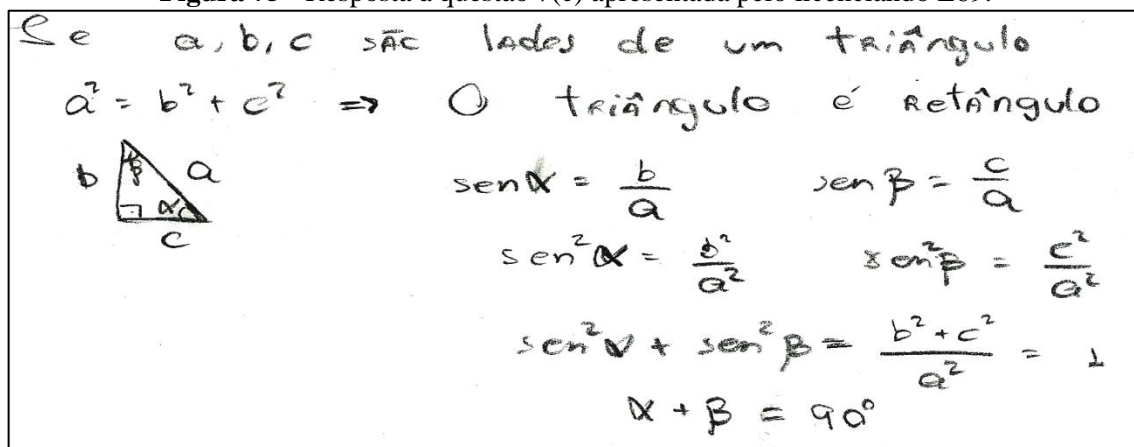 Se a, b, c são lados de um triângulo
a² = b² + c² => O triângulo é retângulo
b β a
α
c
sen α = b/a sen β = c/a
sen²α = b²/a² sen²β = c²/a²
sen²α + sen²β = (b² + c²)/a² = 1
α + β = 90°